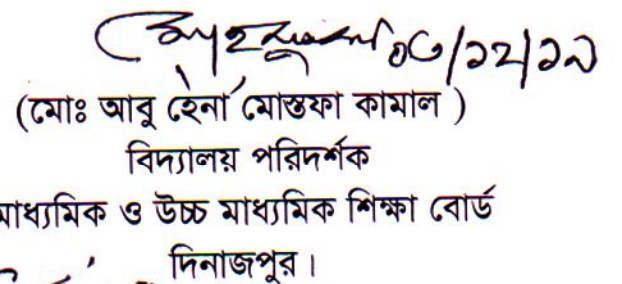 ০৩/১২/১৯
(মোঃ আবু হেনা মোস্তফা কামাল )
বিদ্যালয় পরিদর্শক
মাধ্যমিক ও উচ্চ মাধ্যমিক শিক্ষা বোর্ড
দিনাজপুর।